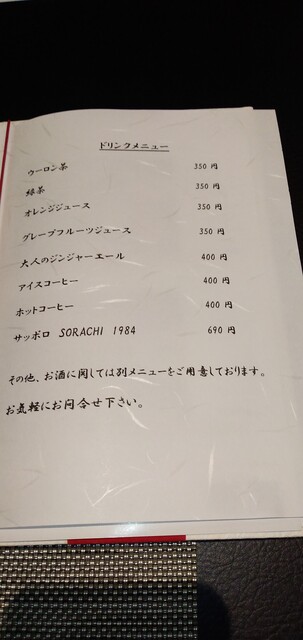 ドリンクメニュー
ウーロン茶 350 円
緑茶 350 円
オレンジジュース 350 円
グレープフルーツジュース 350 円
大人のジンジャーエール 400 円
アイスコーヒー 400 円
ホットコーヒー 400 円
サッポロ SORACHI 1984 690 円
その他、お酒に関しては別メニューをご用意しております。
お気軽にお問合せ下さい。